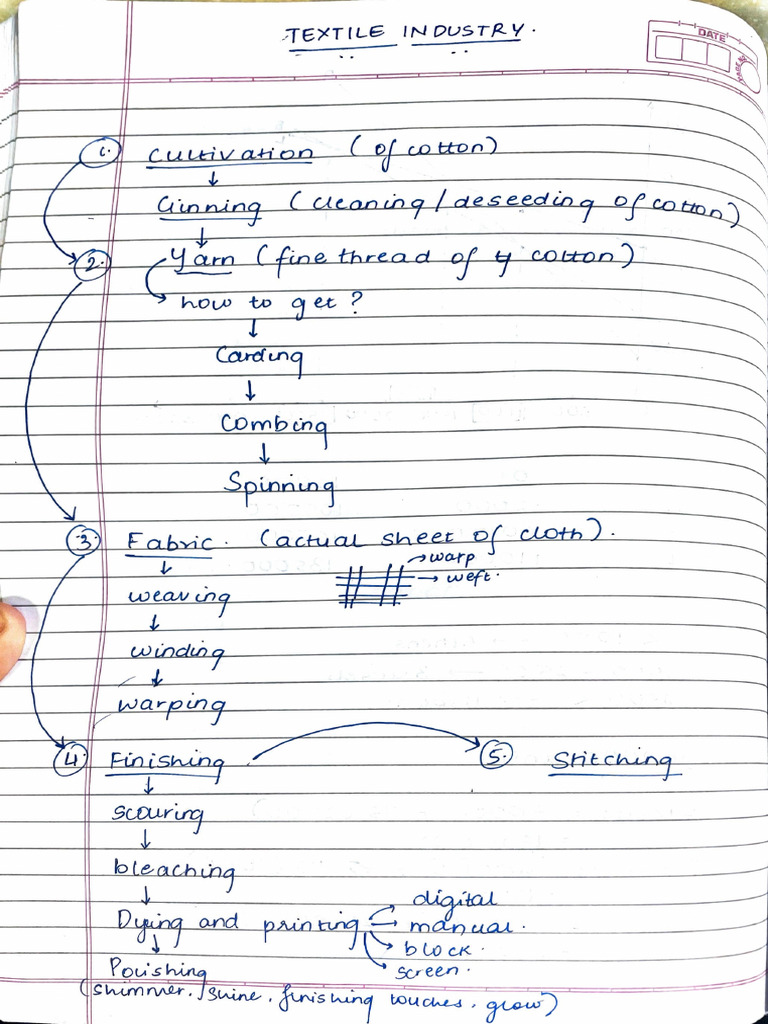 TEXTILE INDUSTRY.
DATE
1. Cultivation (of cotton)
↓
Ginning (cleaning/deseeding of cotton)
↓
2. Yarn (fine thread of cotton)
how to get?
↓
Carding
↓
Combing
↓
Spinning
3. Fabric. (actual sheet of cloth).
→ warp
→ weft.
↓
weaving
↓
winding
↓
warping
4. Finishing 5. Stitching
↓
scouring
↓
bleaching
↓
digital
Dying and printing → manual.
block.
screen.
↓
Polishing
(shimmer./shine. finishing touches. glow)